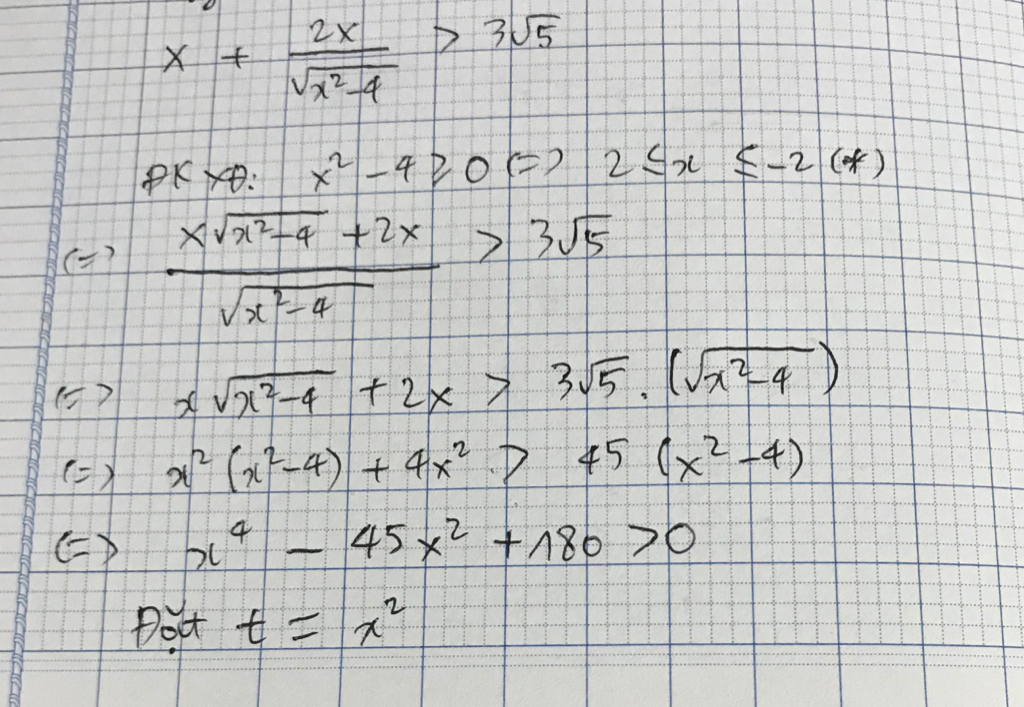 x + 2x/√(x²-4) > 3√5
ĐKXĐ: x² - 4 ≥ 0 (=) 2 ≤ x ≤ -2 (*)
(=) (x√(x²-4) + 2x)/√(x²-4) > 3√5
(=) x√(x²-4) + 2x > 3√5 . (√(x²-4))
(=) x² (x²-4) + 4x² > 45 (x²-4)
(=) x⁴ - 45x² + 180 > 0
Đặt t = x²